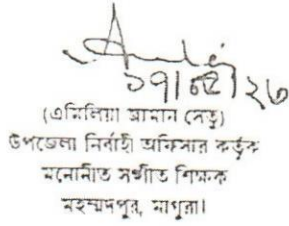 ১৭|০৫|২৩
(এমিলিয়া জামান সেতু)
উপজেলা নির্বাহী অফিসার কর্তৃক
মনোনীত সঙ্গীত শিক্ষক
মহম্মদপুর, মাগুরা।